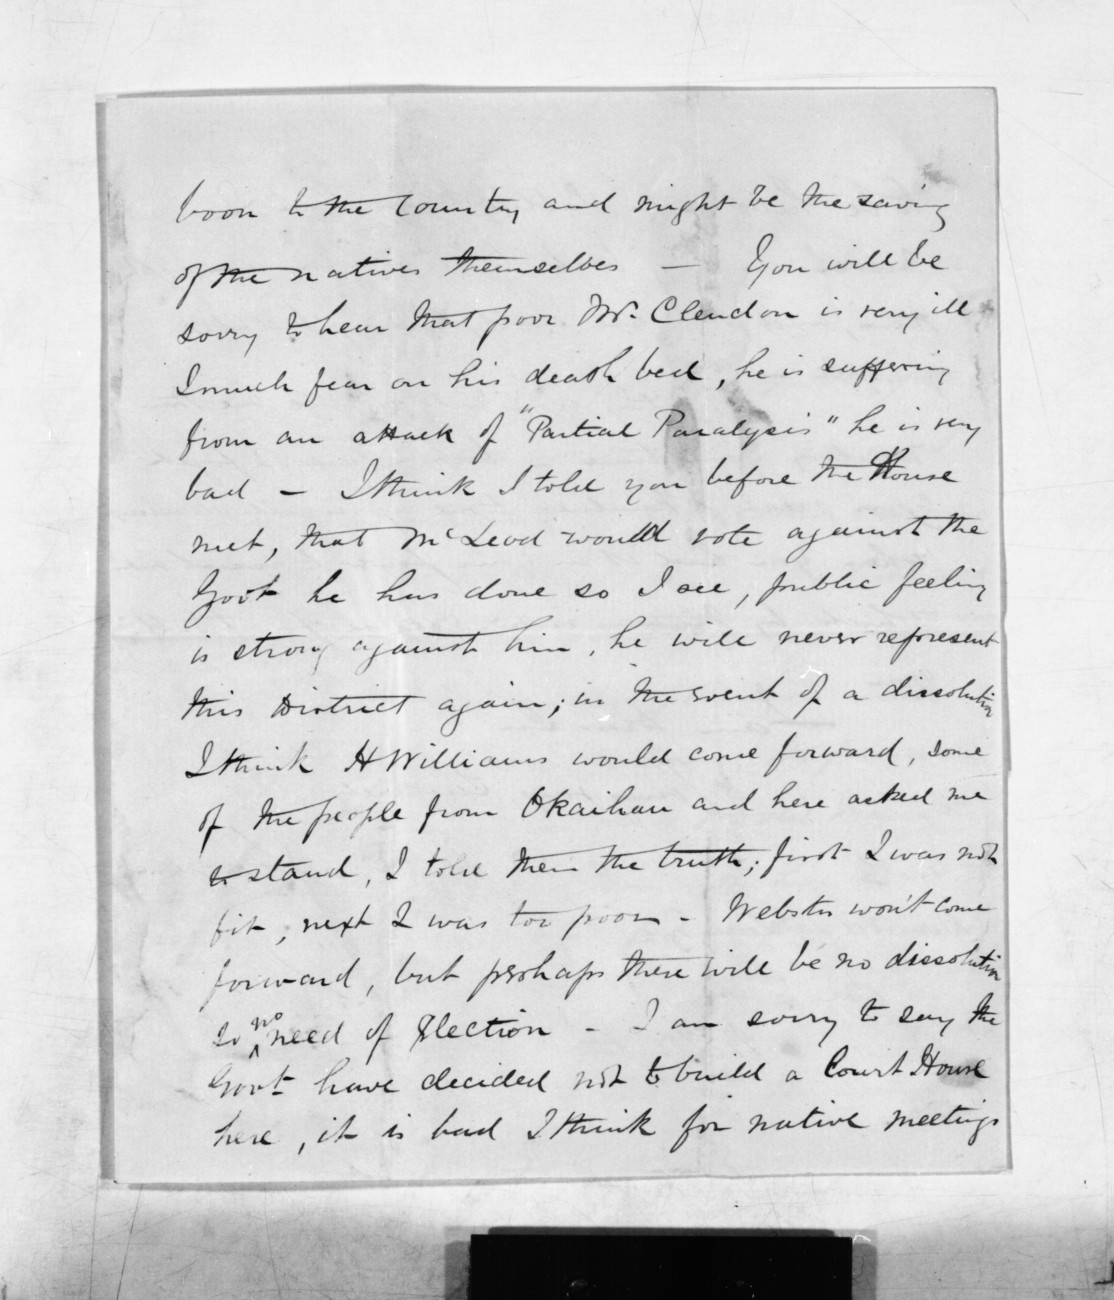 boon to the Country and might be the saving
of the natives themselves — You will be
sorry to hear that poor Mr. Clendon is very ill
I much fear on his death bed, he is suffering
from an attack of "Partial Paralysis" he is very
bad – I think I told you before the House
met, that McLeod would vote against the
Govt he has done so I see, public feeling
is strong against him, he will never represent
this District again; in the event of a dissolution
I think H Williams would come forward, some
of the people from Okaihau and here asked me
to stand, I told them the truth; first I was not
fit, next I was too poor – Webster won't come
forward, but perhaps there will be no dissolution
so no need of Election – I am sorry to say the
Govt have decided not to build a Court House
here, it is bad I think for native meetings